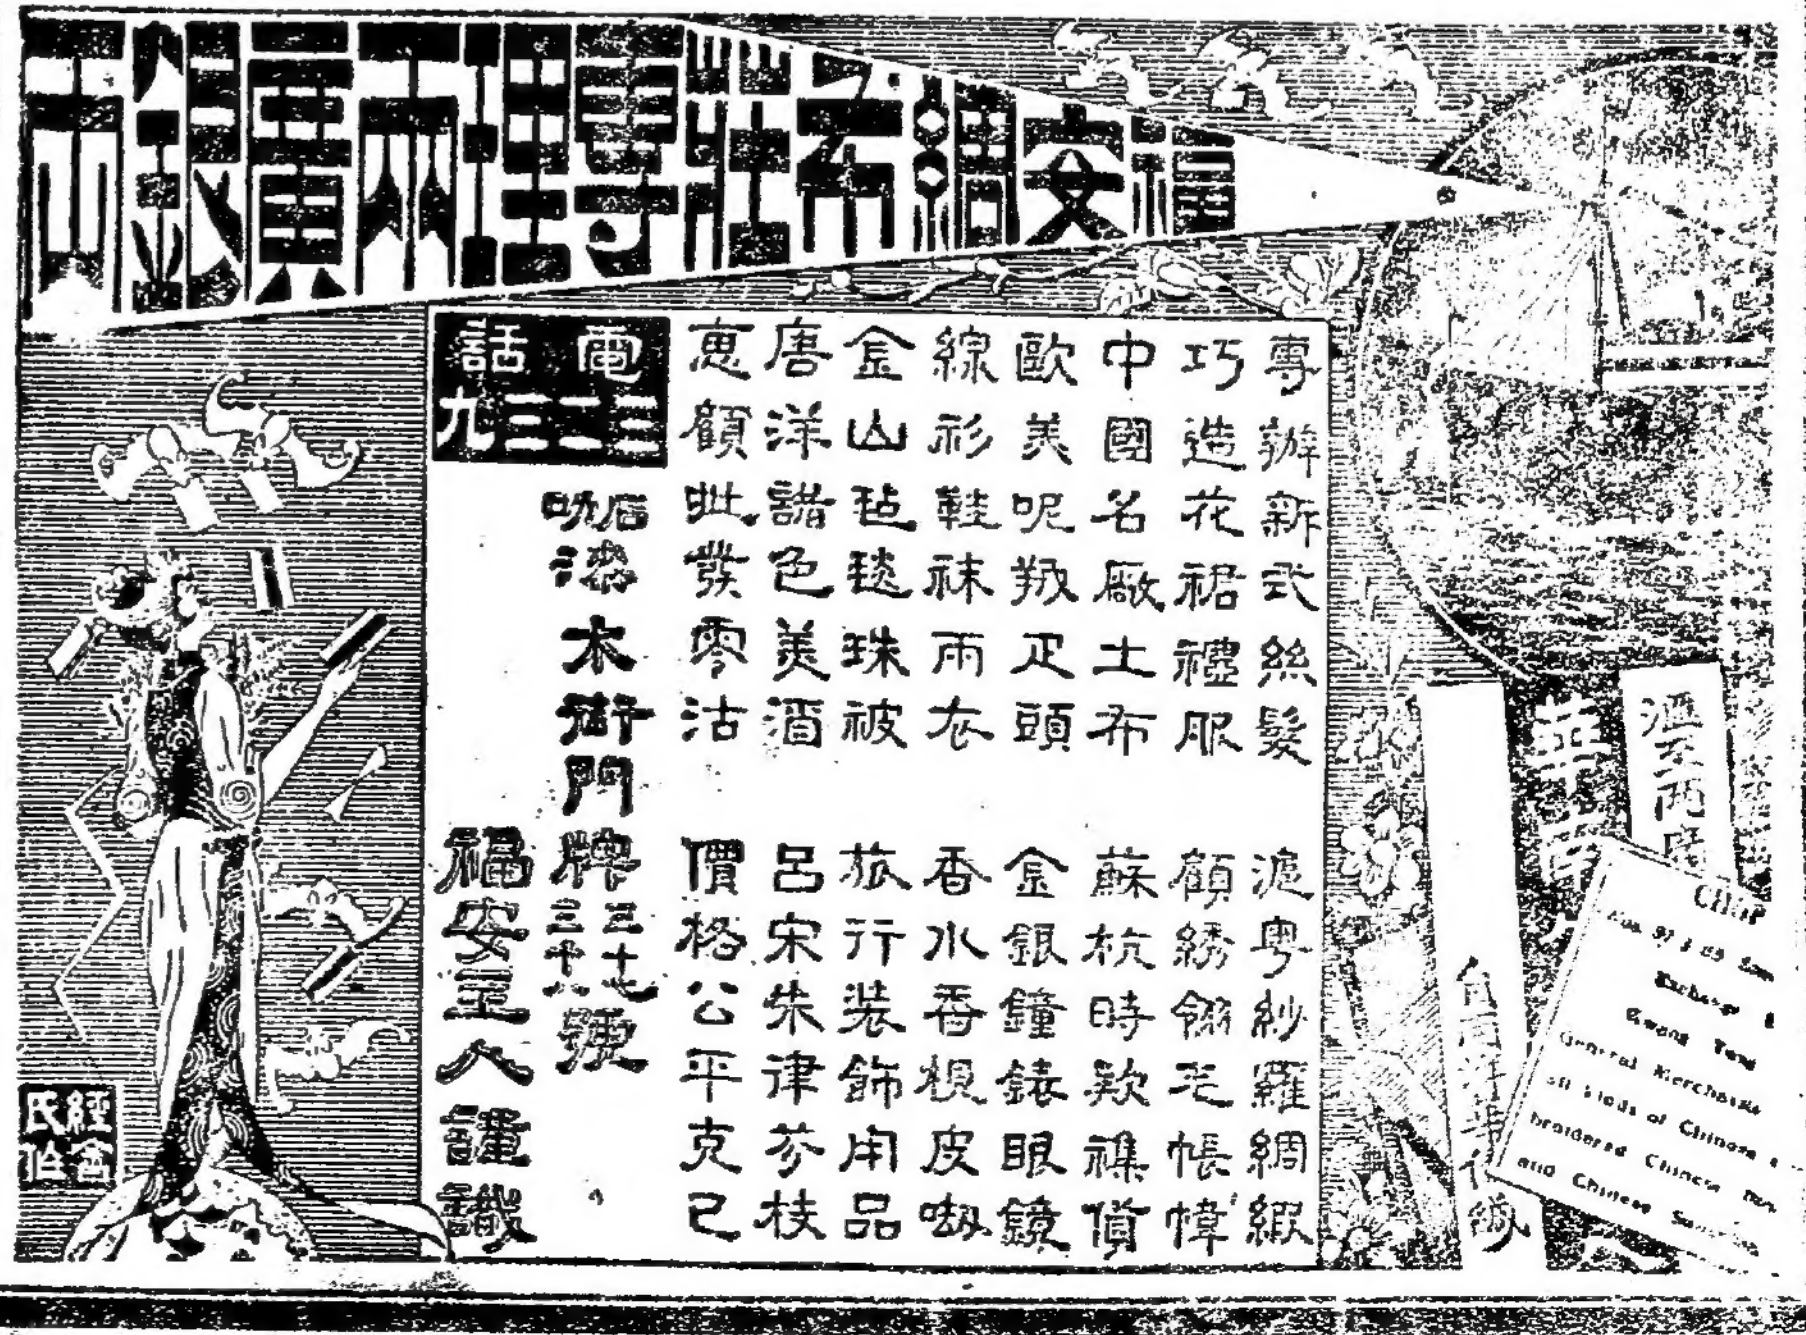 福安綢布莊專理兩廣銀市
專辦新式絲髮 滬粵紗羅綢緞
巧造花裙禮服 顧綉翎毛帳幃
中國名廠土布 蘇杭時欵襍貨
歐美呢羢疋頭 金銀鐘錶眼鏡
線衫鞋襪雨衣 香水香梘皮喼
金山毡毯珠被 旅行裝飾用品
唐洋諸色美酒 呂宋朱律芬枝
惠顧批發零沽 價格公平克己
電話
三二三九
木街門牌三十七 三十八號
福安主人謹識
滙兌兩廣
Exchange
Kwong Tung
General Merchants
all kinds of Chinese
broidered Chinese
and Chinese